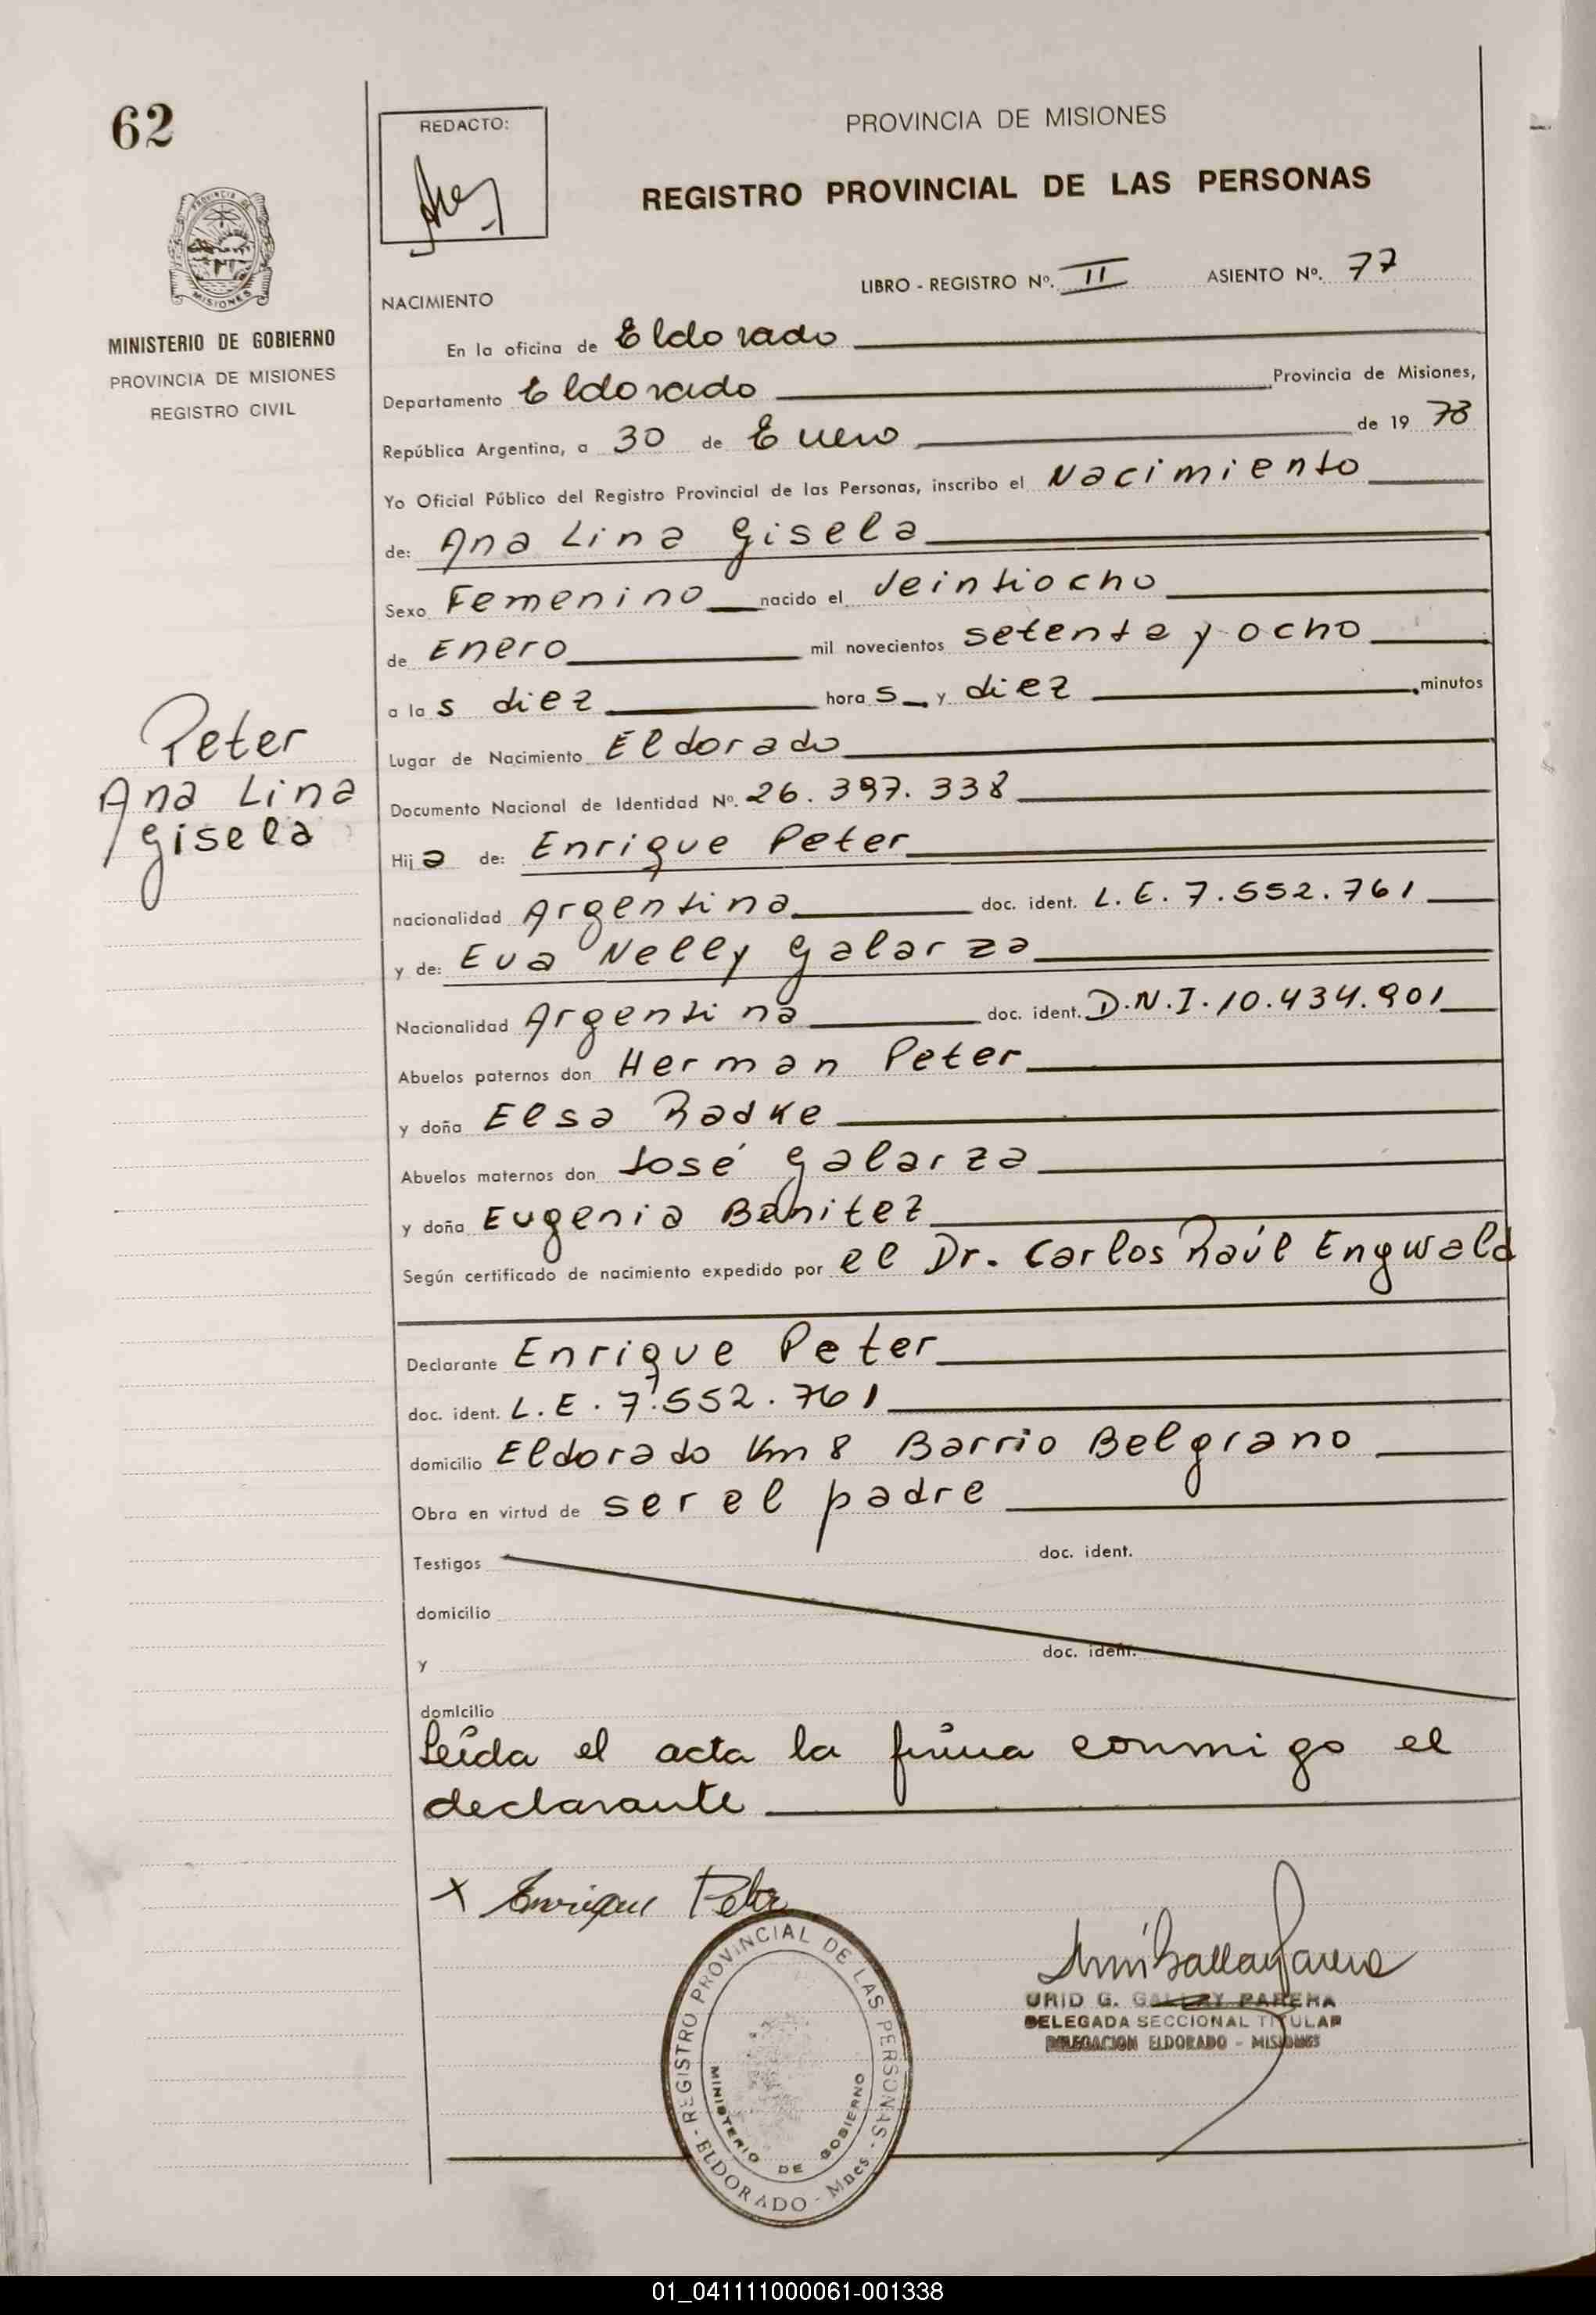 62
REDACTO:
PROVINCIA DE MISIONES
REGISTRO PROVINCIAL DE LAS PERSONAS
LIBRO - REGISTRO Nº. II ASIENTO Nº. 77
NACIMIENTO
MISIONES
MINISTERIO DE GOBIERNO
PROVINCIA DE MISIONES
REGISTRO CIVIL
En la oficina de Eldorado
Departamento Eldorado Provincia de Misiones,
República Argentina, a 30 de Enero de 19 78
Yo Oficial Público del Registro Provincial de las Personas, inscribo el Nacimiento
de: Ana Lina Gisela
Sexo Femenino nacido el Veintiocho
de Enero mil novecientos setenta y ocho
a la s diez hora s y diez minutos
Lugar de Nacimiento Eldorado
Peter
Ana Lina
Gisela
Documento Nacional de Identidad Nº. 26.397.338
Hij a de: Enrique Peter
nacionalidad Argentina doc. ident. L.E. 7.552.761
y de: Eva Nelly Galarza
Nacionalidad Argentina doc. ident. D.N.I. 10.434.901
Abuelos paternos don Herman Peter
y doña Elsa Radke
Abuelos maternos don José Galarza
y doña Eugenia Benitez
Según certificado de nacimiento expedido por el Dr. Carlos Raúl Engwald
Declarante Enrique Peter
doc. ident. L.E. 7.552.761
domicilio Eldorado Km 8 Barrio Belgrano
Obra en virtud de ser el padre
Testigos doc. ident.
domicilio
y doc. ident.
domicilio
Leída el acta la firma conmigo el
declarante
x Enrique Peter
REGISTRO PROVINCIAL DE LAS PERSONAS - ELDORADO - Mnes -
MINISTERIO DE GOBIERNO
URID G. GALLAY PARERA
DELEGADA SECCIONAL TITULAR
DELEGACION ELDORADO - MISIONES
01_041111000061-001338